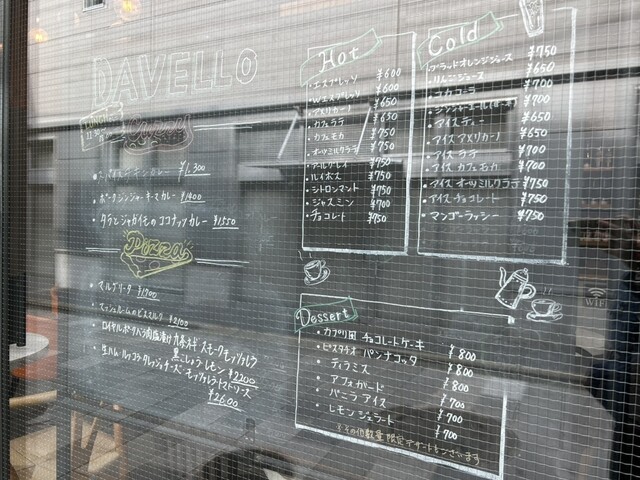 DAVELLO
LUNCH
11:30
Curry
チキンカレー ¥1,300
・ポークジンジャーキーマカレー ¥1400
・タラとジャガイモのココナッツカレー ¥1550
Pizza
・マルゲリータ ¥1700
・マッシュルームのビスマルク ¥2100
・ロイヤルポークバラ肉塩漬け 九条ネギ スモークモッツァレラ
黒こしょう レモン ¥2200
・生ハム ルッコラ タレッジョチーズ モッツァレラ トマトソース
¥2600
Hot
・エスプレッソ ¥600
・Wエスプレッソ ¥600
・アメリカーノ ¥650
・カフェラテ ¥650
・カフェモカ ¥750
・オーツミルクラテ ¥750
・アールグレイ ¥750
・ルイボス ¥750
・シトロンマント ¥750
・ジャスミン ¥700
・チョコレート ¥750
Cold
・ブラッドオレンジジュース ¥750
・りんごジュース ¥650
・コカコーラ ¥700
・ジンジャーエール ¥700
・アイスティー ¥650
・アイスアメリカーノ ¥650
・アイスラテ ¥700
・アイスカフェモカ ¥700
・アイスオーツミルクラテ ¥750
・アイスチョコレート ¥750
・マンゴーラッシー ¥750
WiFi
Dessert
・カプリ風チョコレートケーキ ¥800
・ピスタチオ パンナコッタ ¥800
・ティラミス ¥800
・アフォガード ¥700
・バニラアイス ¥700
・レモンジェラート ¥700
※その他数量限定デザートもございます